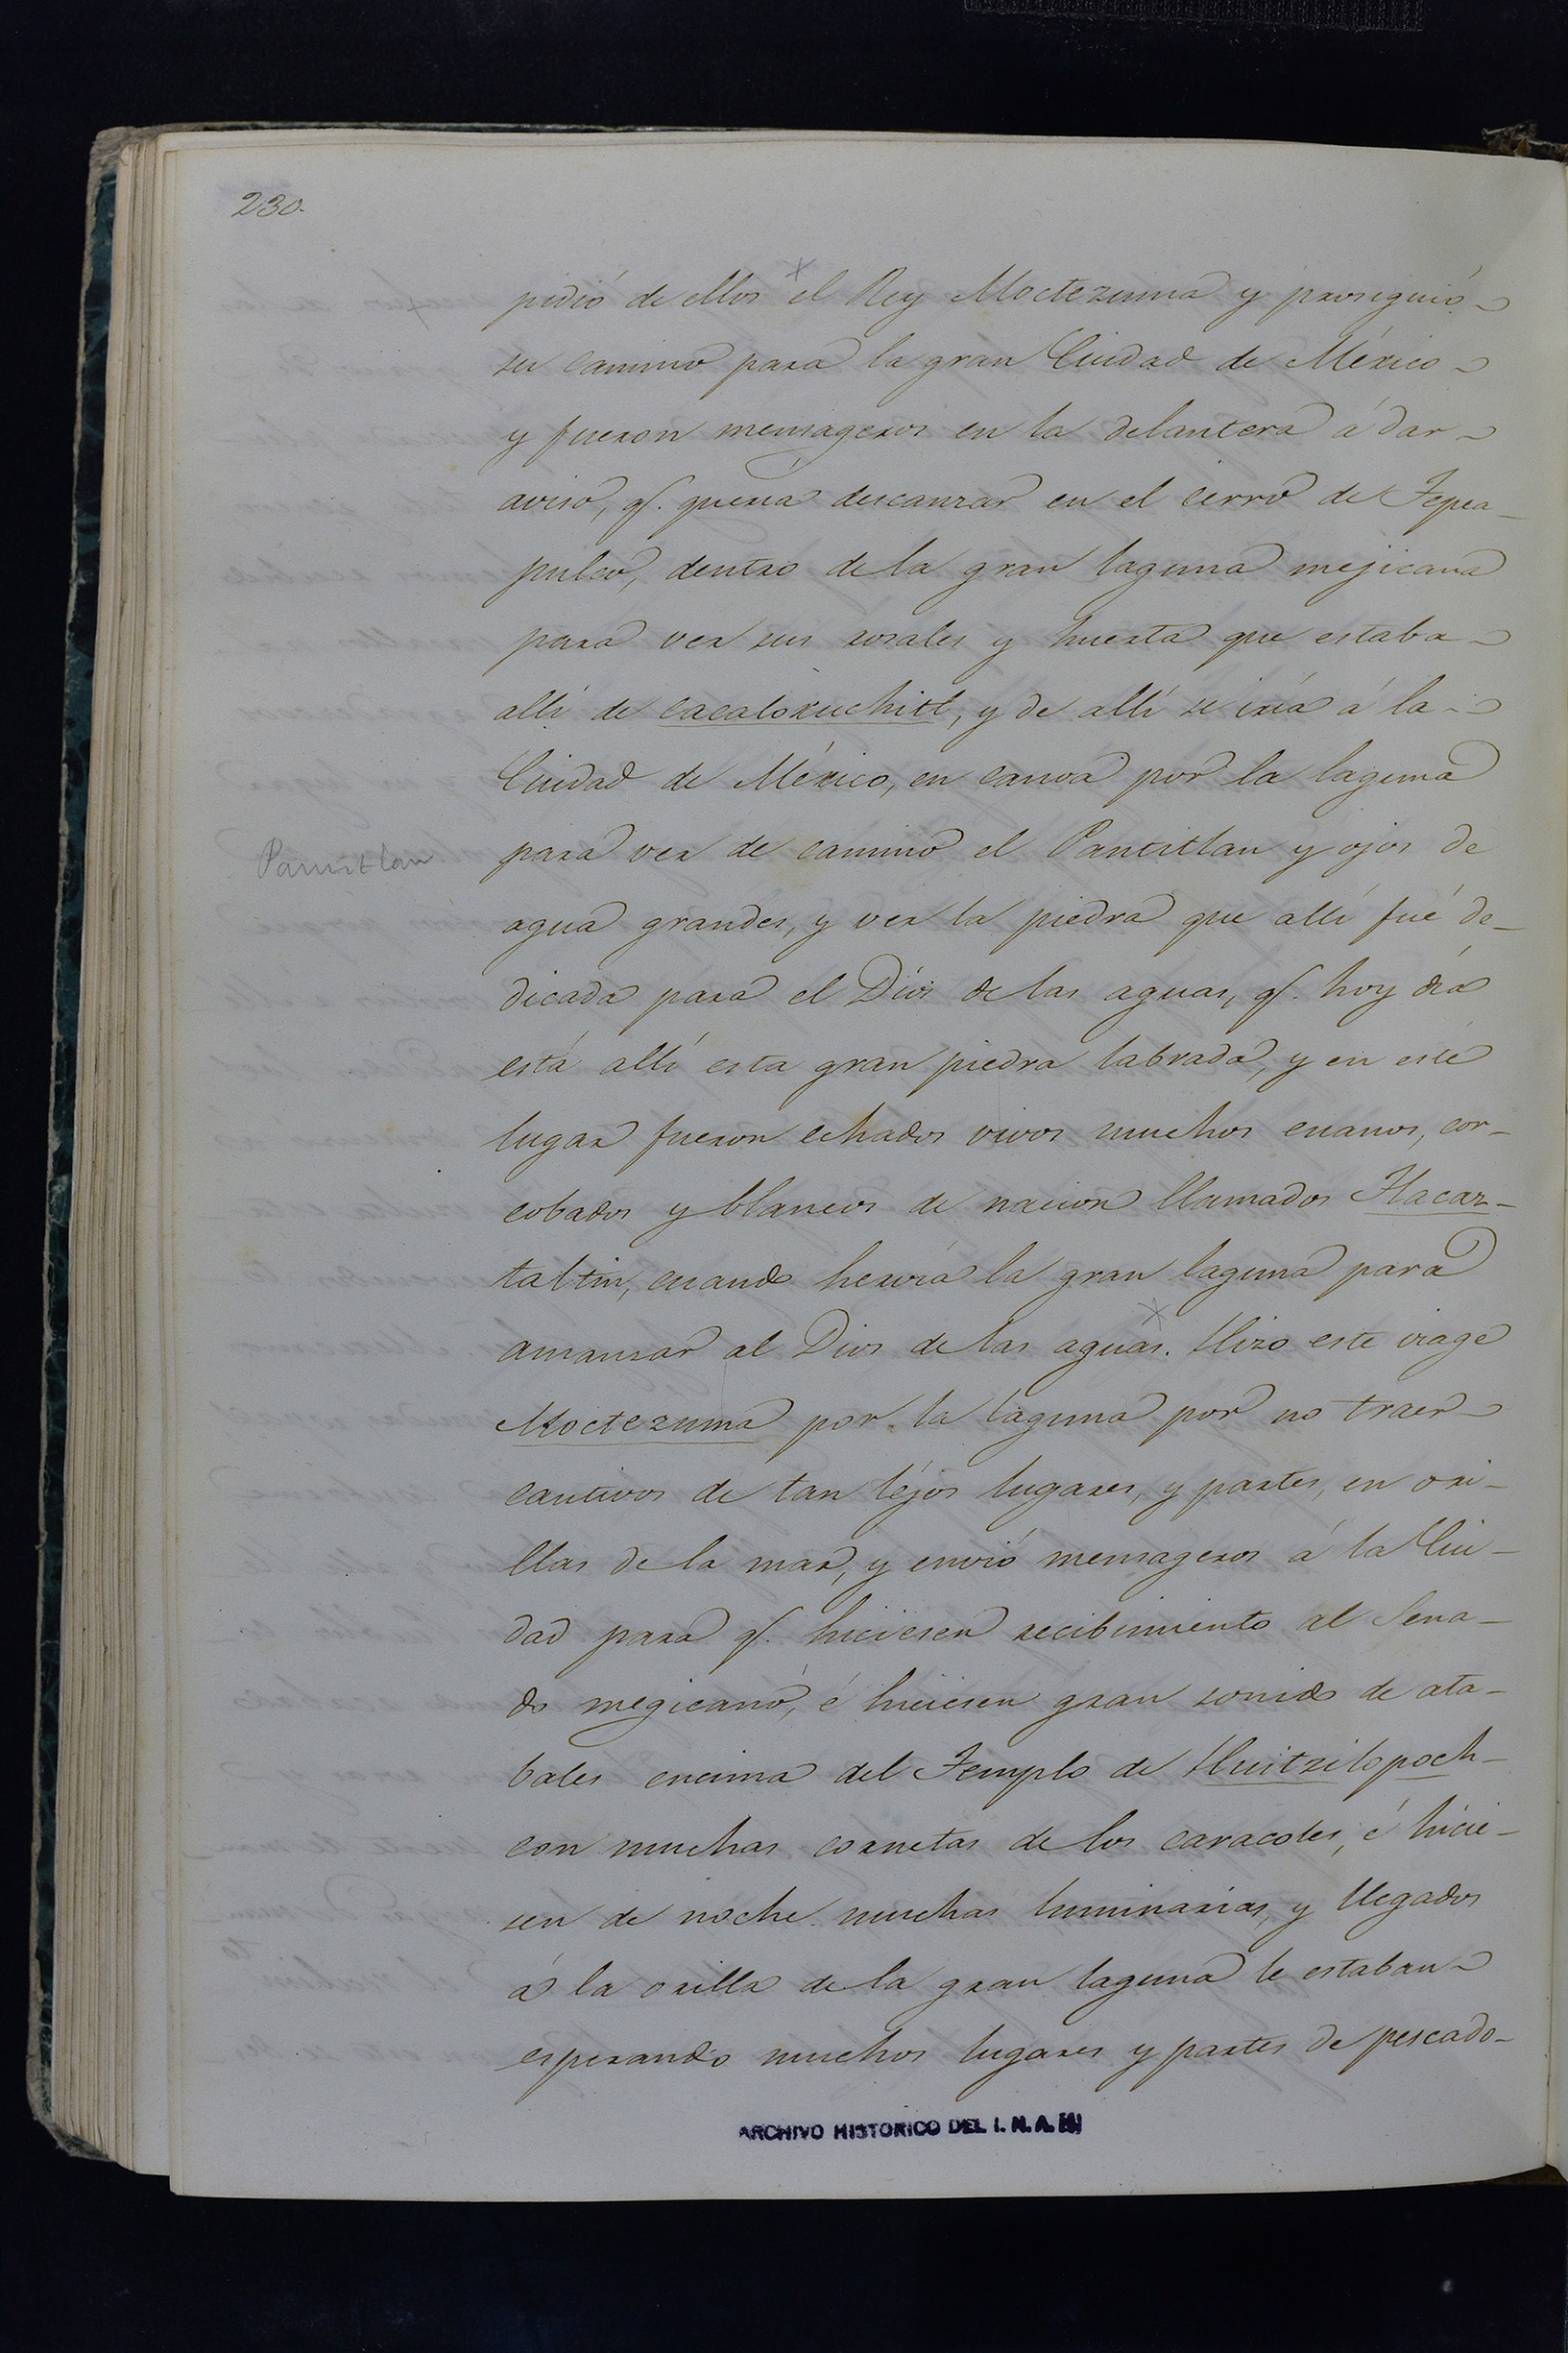 230.
pidió de ellos el Rey Moctezuma y prosiguió
su camino para la gran Ciudad de México
y fueron mensageros en la delantera á dar
aviso, q. queria descanzar en el cerro de Tepea-
pulco, dentro de la gran laguna mejicana
para ver sus rosales y huerta que estaba
allí de cacaloxuchitl, y de allí se iría á la
Ciudad de México, en canoa por la laguna
Pantitlan
para ver de camino el Pantitlan y ojos de
agua grandes, y ver la piedra que allí fué de-
dicada para el Dios de las aguas, q. hoy día
está allí esta gran piedra labrada, y en este
lugar fueron echados vivos muchos enanos, cor-
cobados y blancos de nacion llamados Tlacaz-
taltin, cuando hervía la gran laguna para
amansar al Dios de las aguas. Hizo este viage
Moctezuma por la laguna por no traer
cautivos de tan léjos lugares, y partes, en ori-
llas de la mar, y envió mensageros á la Ciu-
dad para q. hiciesen recibimiento al Sena-
do megicano, é hiciesen gran sonido de ata-
bales encima del Templo de Huitzilopoch-
con muchas cornetas de los caracoles, é hicie-
sen de noche muchas luminarias, y llegados
á la orilla de la gran laguna le estaban
esperando muchos lugares y partes de pescado-
ARCHIVO HISTORICO DEL I. N. A. H